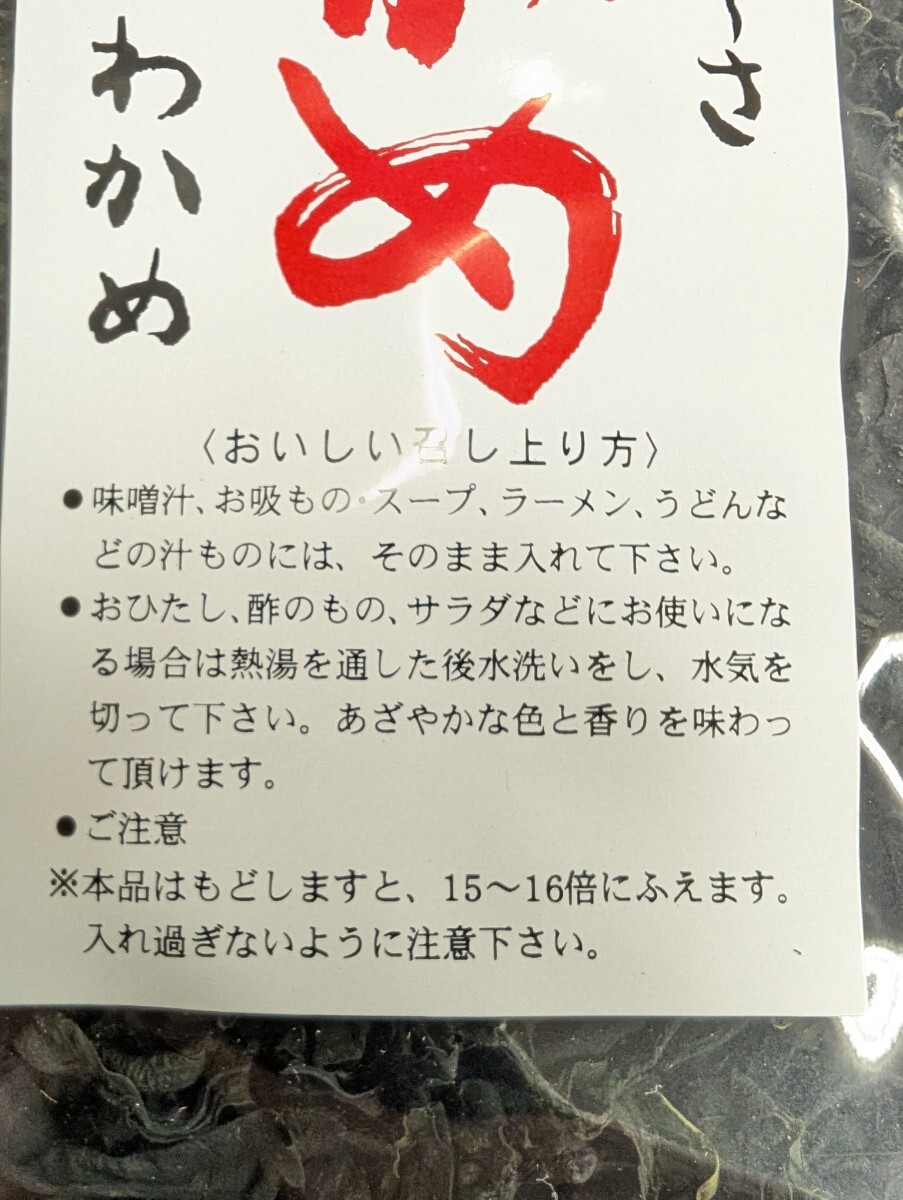 さ
め
わかめ
〈おいしい召し上り方〉
●味噌汁、お吸もの・スープ、ラーメン、うどんな
どの汁ものには、そのまま入れて下さい。
●おひたし、酢のもの、サラダなどにお使いにな
る場合は熱湯を通した後水洗いをし、水気を
切って下さい。あざやかな色と香りを味わっ
て頂けます。
●ご注意
※本品はもどしますと、15～16倍にふえます。
入れ過ぎないように注意下さい。